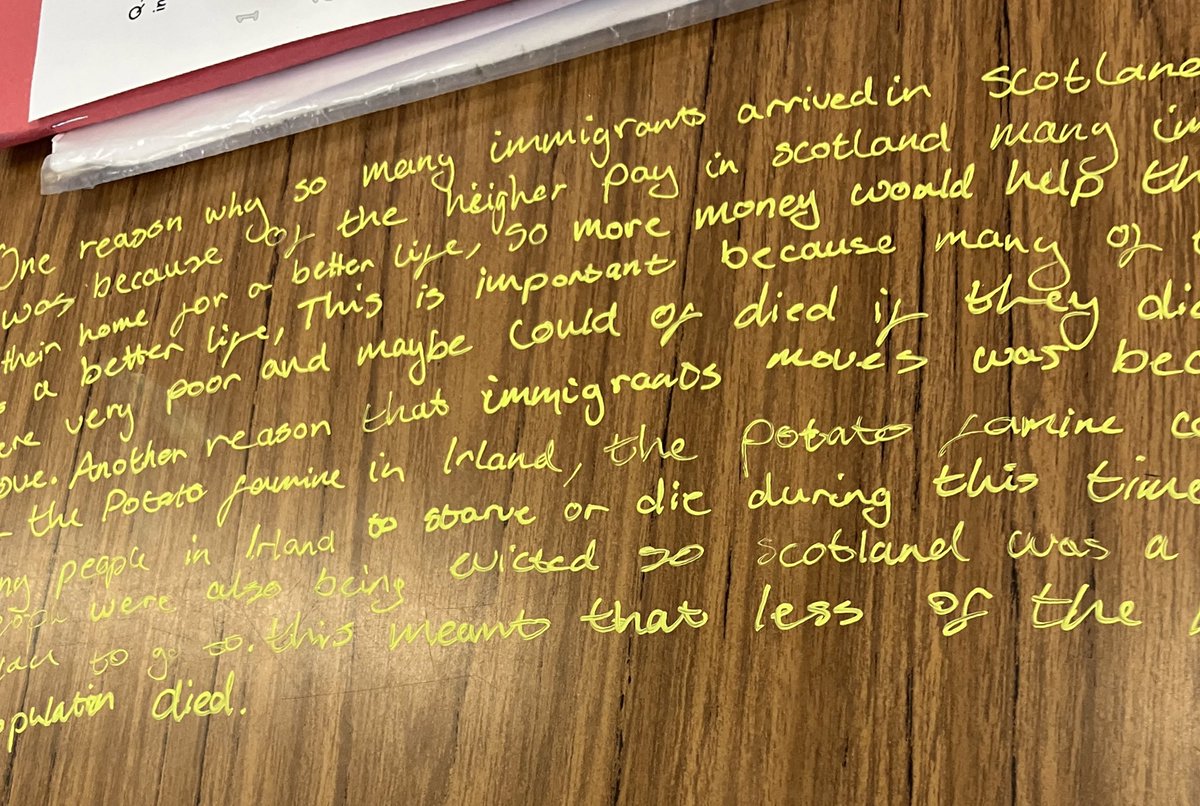 Q
in
1
One reason why so many immigrants arrived in Scotland
was because of the heigher pay in scotland many im
their home for a better life, so more money would help th
a better life, This is important because many of
ere very poor and maybe could of died if they di
ove. Another reason that immigrands moves was bec
the Potato famine in Irland, the potato famine c
ny people in Irland to starve or die during this time
were also being evicted so scotland was a
to go to. this meants that less of the
opulatin died.